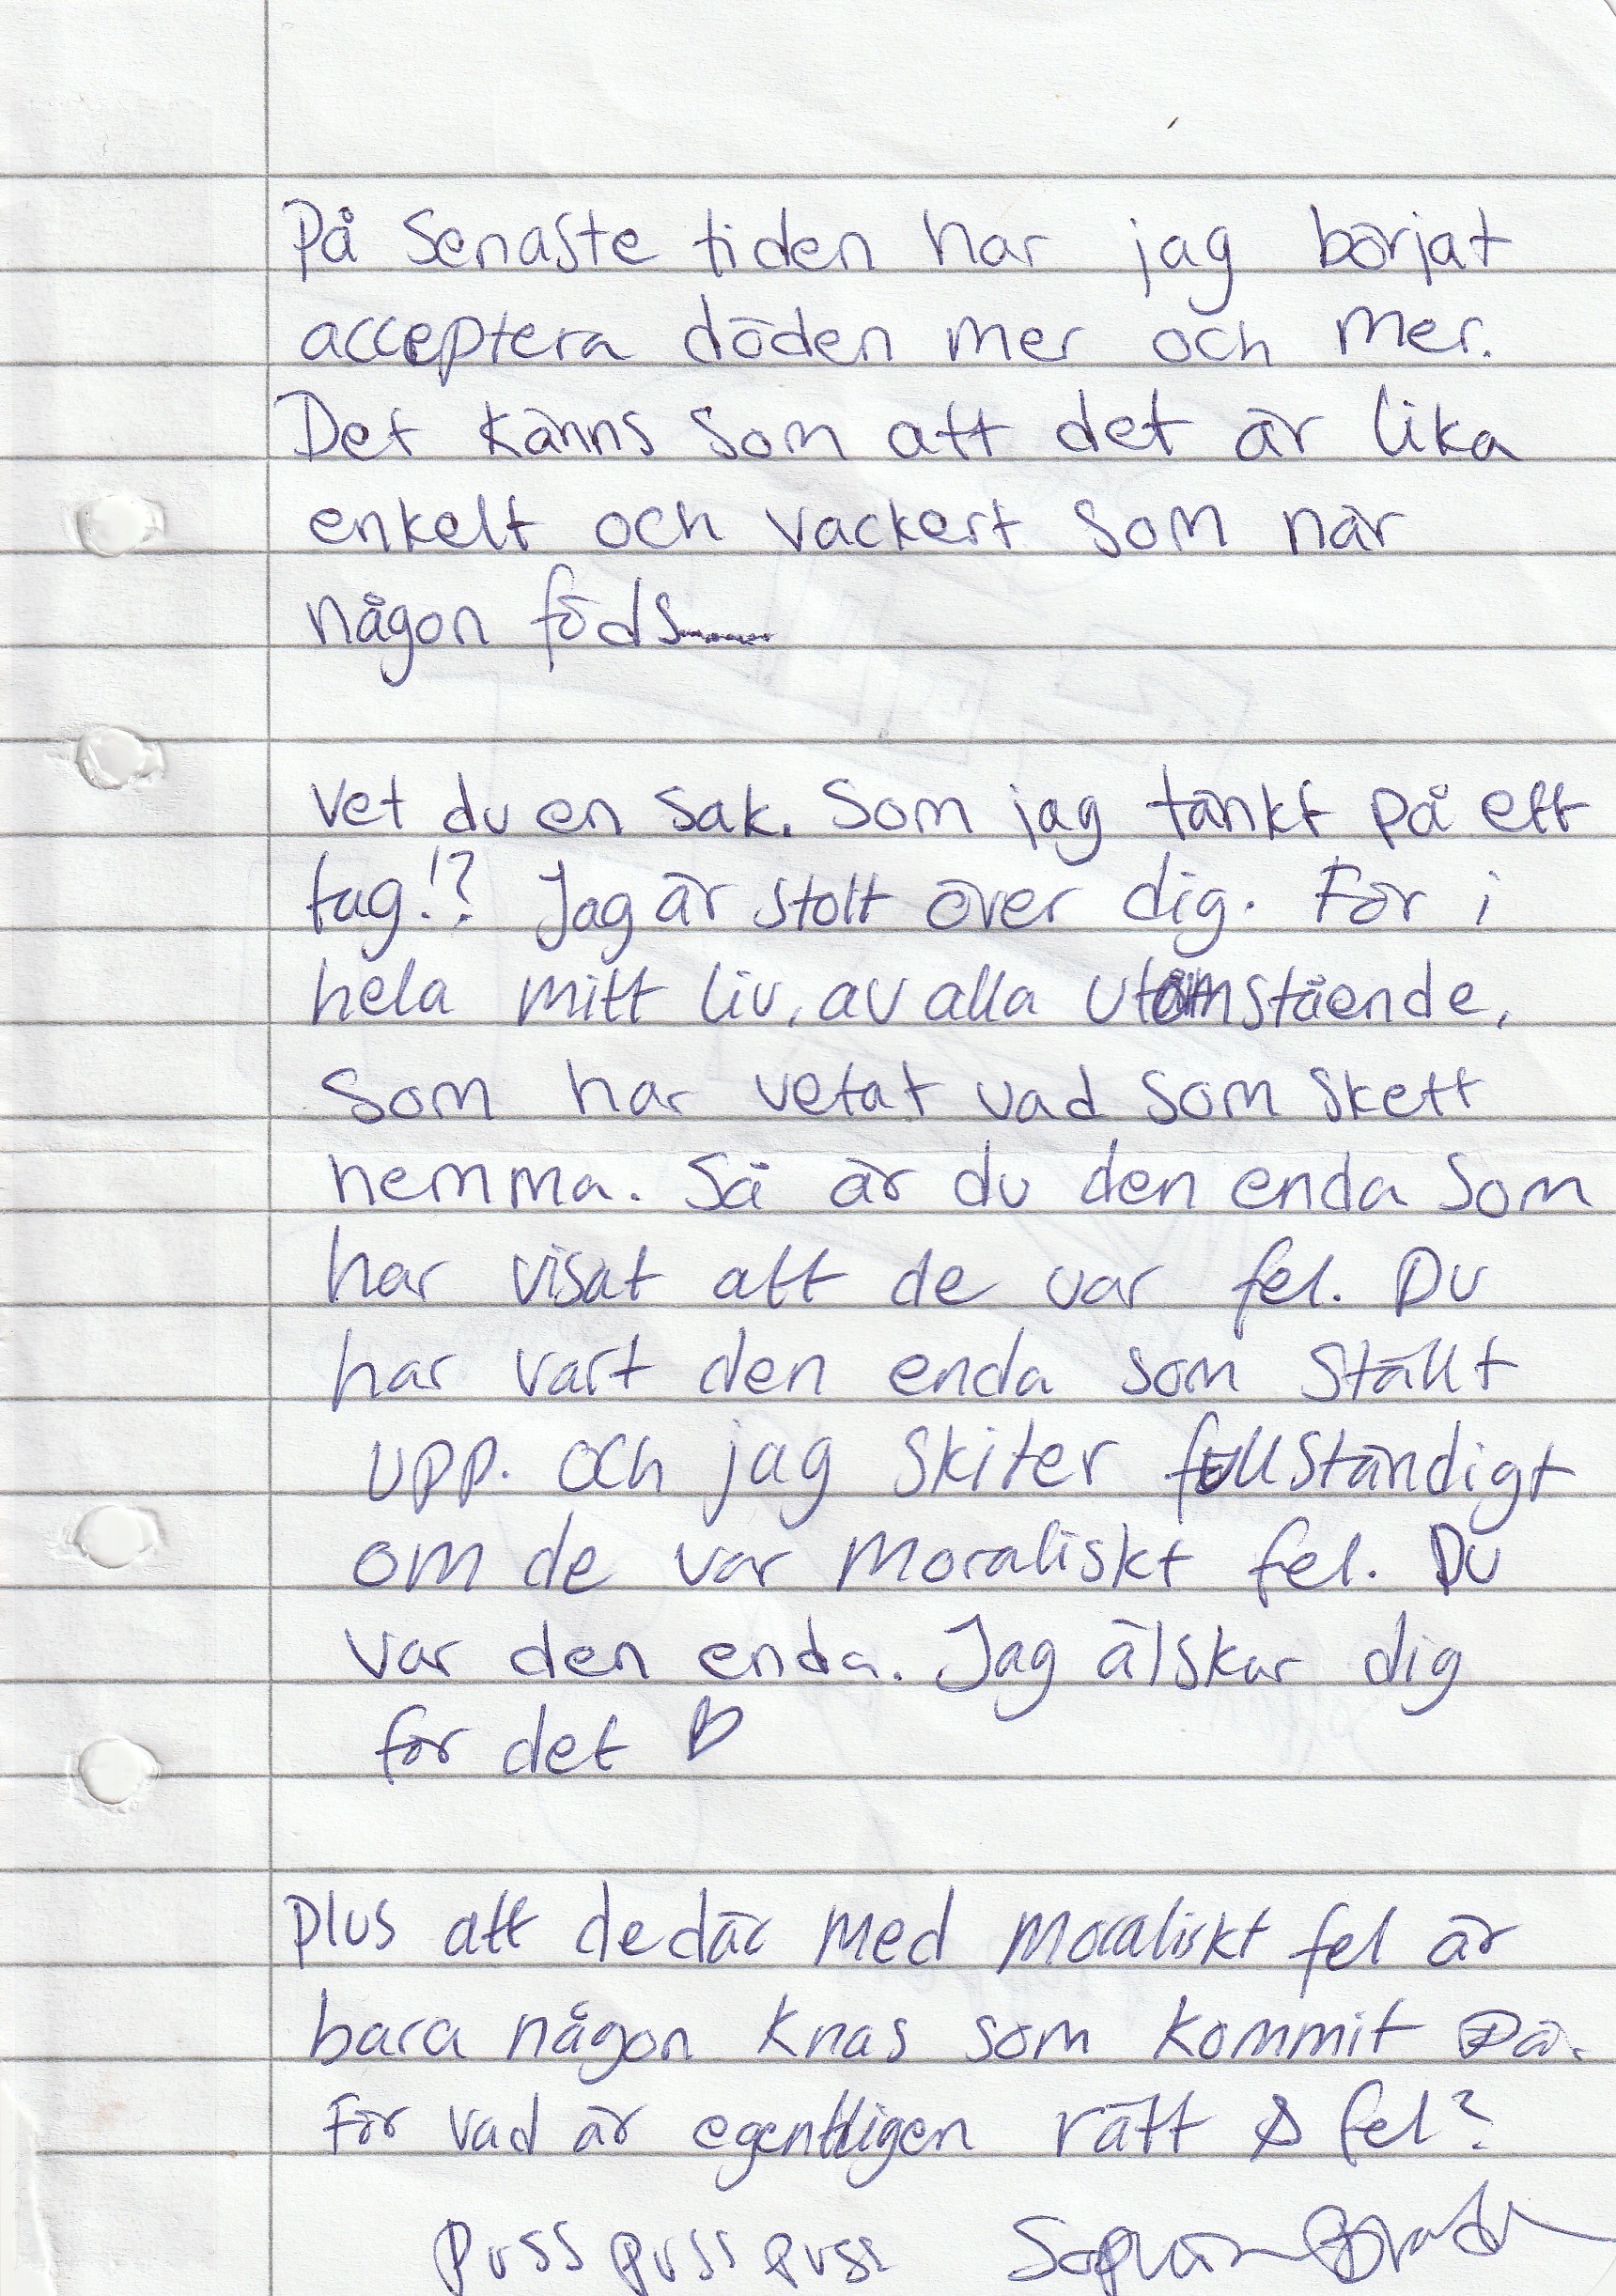 På senaste tiden har jag börjat
acceptera döden mer och mer.
Det känns som att det är lika
enkelt och vackert som när
någon föds
Vet du en sak. Som jag tänkt på ett
tag!? Jag är stolt över dig. För i
hela mitt liv, av alla utomstående,
som har vetat vad som skett
hemma. Så är du den enda som
har visat att de var fel. Du
har vart den enda som ställt
upp. och jag skiter fullständigt
om de var moraliskt fel. Du
var den enda. Jag älskar dig
för det ♡
Plus att dedär med moraliskt fel är
bara någon knas som kommit på.
För vad är egentligen rätt & fel?
Puss puss puss